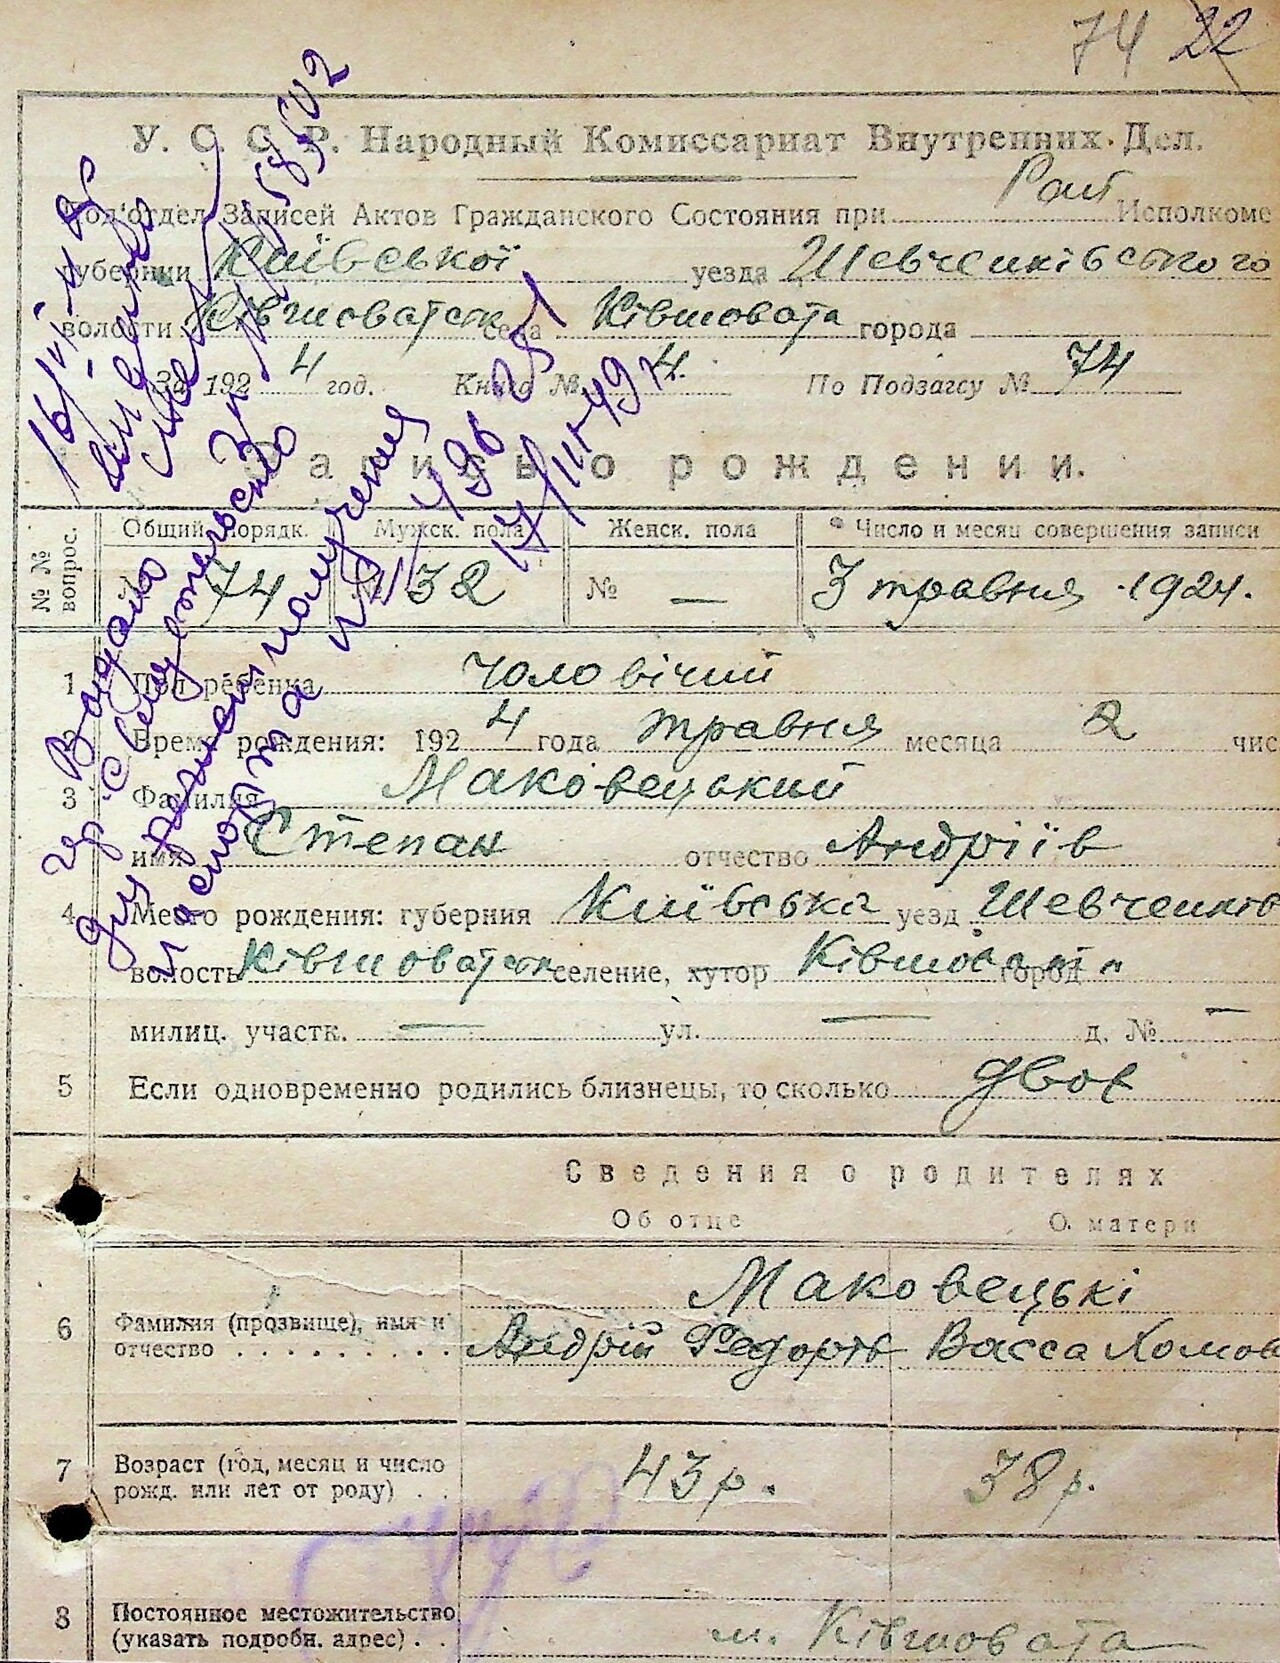 74 22
У. С. С. Р. Народный Комиссариат Внутренних Дел.
Под'отдел Записей Актов Гражданского Состояния при Исполкоме
губернии Київської уезда Шевченківського
волости Ківшоватськ села Ківшовата города
За 1924 год. Книга № 4. По Подзагсу № 74
Запись о рождении.
№№ вопрос. Общий порядк. Мужск. пола Женск. пола Число и месяц совершения записи
74 № 32 № — 3 травня 1924.
1 Пол ребенка чоловічий
2 Время рождения: 1924 года травня месяца 2 чис
3 Фамилия Маковецький
имя Степан отчество Андріїв
4 Место рождения: губерния Київська уезд Шевченків
волость Ківшоватськ селение, хутор Ківшовата город
милиц. участк. — ул. — д. № —
5 Если одновременно родились близнецы, то сколько двоє
Сведения о родителях
Об отце О матери
Маковецькі
6 Фамилия (прозвище), имя и отчество . . . . . . . . . Андрій Федорів Васса Хомов
7 Возраст (год, месяц и число рожд. или лет от роду) . . 43 р. 38 р.
8 Постоянное местожительство (указать подробн. адрес) . . м. Ківшовата
Выдано
гр. свидетельство
для получения
паспорта
17/III-49 г.